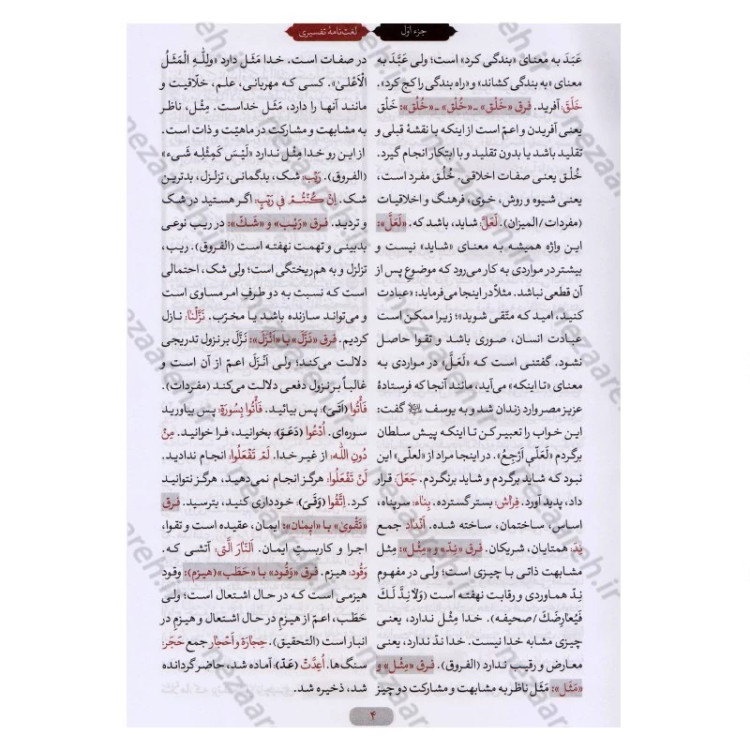 جزء اوّل
لغت‌نامهٔ تفسیری
عَبَدَ به معنای «بندگی کرد» است؛ ولی عَبَّدَ به
معنای «به بندگی کشاند» و «راه بندگی را کج کرد».
خَلَقَ آفرید. فرق «خَلَق» ـ «خُلُق» ـ «خُلق»: خَلَق
یعنی آفریدن و اعمّ است از اینکه با نقشهٔ قبلی و
تقلید باشد یا بدون تقلید و با ابتکار انجام گیرد.
خُلُق یعنی صفات اخلاقی. خُلق مفرد است،
یعنی شیوه و روش، خوی، فرهنگ و اخلاقیات
(مفردات/المیزان). لَعَلَّ: شاید، باشد که. «لَعَلَّ»:
این واژه همیشه به معنای «شاید» نیست و
بیشتر در مواردی به کار می‌رود که موضوعِ پس از
آن قطعی نباشد. مثلاً در اینجا می‌فرماید: «عبادت
کنید، امید که متّقی شوید»؛ زیرا ممکن است
عبادت انسان، صوری باشد و تقوا حاصل
نشود. گفتنی است که «لَعَلَّ» در مواردی به
معنای «تا اینکه» می‌آید، مانند آنجا که فرستادهٔ
عزیز مصر وارد زندان شد و به یوسف گفت:
این خواب را تعبیر کن تا اینکه پیش سلطان
برگردم «لَعَلّی اَرْجِعُ». در اینجا مراد از «لعلّی» این
نبود که شاید برگردم و شاید برنگردم. جَعَلَ: قرار
داد، پدید آورد. فِراش: بستر گسترده. بِناء: سرپناه،
اساس، ساختمان، ساخته شده. اَنْداد جمع
نِدّ: همتایان، شریکان. فرق «نِدّ» و «مِثل»: مِثل
مشابهت ذاتی با چیزی است؛ ولی در مفهوم
نِدّ هماوردی و رقابت نهفته است (وَلا نِدَّ لَکَ
فَیُعارِضَکَ/ صحیفه). خدا مِثل ندارد، یعنی
چیزی مشابه خدا نیست. خدا ندّ ندارد، یعنی
معارض و رقیب ندارد (الفروق). فرق «مِثل» و
«مَثَل»: مَثَل ناظر به مشابهت و مشارکت دو چیز
در صفات است. خدا مَثَل دارد «وَلِلّٰهِ الْمَثَلُ
الْاَعْلیٰ». کسی که مهربانی، علم، خلّاقیت و
مانند آنها را دارد، مَثَل خداست. مِثل، ناظر
به مشابهت و مشارکت در ماهیّت و ذات است.
از این رو خدا مِثل ندارد «لَیْسَ کَمِثْلِهِ شَیء»
(الفروق). رَیْب: شک، بدگمانی، تزلزل، بدترین
شک. اِنْ کُنْتُمْ فی رَیْبٍ: اگر هستید در شک
و تردید. فرق «رَیْب» و «شَکّ»: در ریب نوعی
بدبینی و تهمت نهفته است (الفروق). ریب،
تزلزل و به هم‌ریختگی است؛ ولی شک، احتمالی
است که نسبت به دو طرف امر مساوی است
و می‌تواند سازنده باشد یا مخرّب. نَزَّلْنا: نازل
کردیم. فرق «نَزَّلَ» با «اَنْزَلَ»: نَزَّلَ بر نزول تدریجی
دلالت می‌کند؛ ولی اَنْزَلَ اعم از آن است و
غالباً بر نزول دفعی دلالت می‌کند (مفردات).
فَأْتُوا (اَتَیَ): پس بیائید. فَأْتُوا بِسُورَةٍ: پس بیاورید
سوره‌ای. اُدْعُوا (دَعَوَ): بخوانید، فرا خوانید. مِنْ
دُونِ اللّٰه: از غیر خدا. لَمْ تَفْعَلُوا: انجام ندادید.
لَنْ تَفْعَلُوا: هرگز انجام نمی‌دهید، هرگز نتوانید
کرد. اِتَّقُوا (وَقَیَ): خودداری کنید، بترسید. فرق
«تَقْویٰ» با «ایمٰان»: ایمان، عقیده است و تقوا،
اجرا و کاربستِ ایمان. اَلنّارَ الَّتی: آتشی که.
وَقُود: هیزم. فرق «وَقُود» با «حَطَب» (هیزم): وقود
هیزمی است که در حال اشتعال است؛ ولی
حَطَب، اعمّ از هیزم در حال اشتعال و هیزم در
انبار است (التحقیق). حِجارَة و اَحْجار جمع حَجَر:
سنگ‌ها. اُعِدَّتْ (عَدَّ): آماده شد، حاضر گردانده
شد، ذخیره شد.
۴